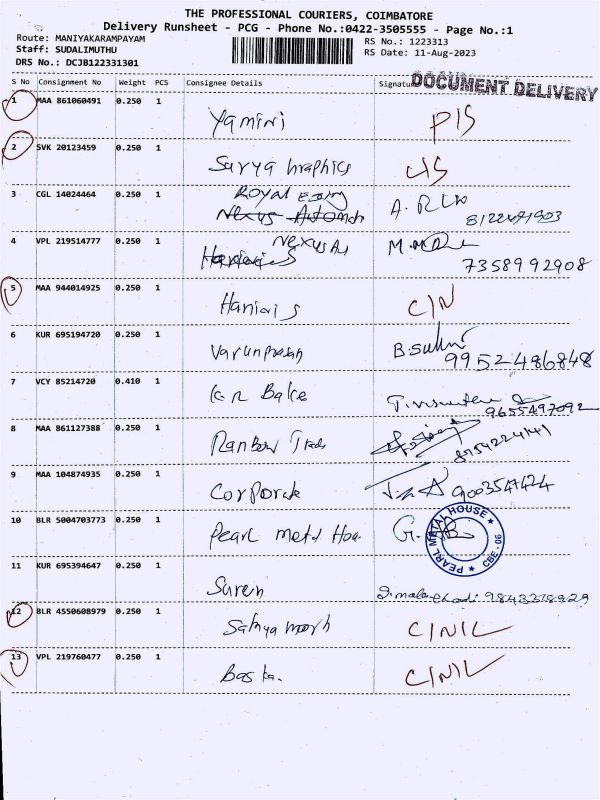 THE PROFESSIONAL COURIERS, COIMBATORE
Delivery Runsheet - PCG - Phone No.:0422-3505555 - Page No.:1
Route: MANIYAKARAMPAYAM RS No.: 1223313
Staff: SUDALIMUTHU RS Date: 11-Aug-2023
DRS No.: DCJB122331301
S No Consignment No Weight PCS Consignee Details Signatu
DOCUMENT DELIVERY
1 MAA 861060491 0.250 1 Yamini P/S
2 SVK 20123459 0.250 1 Surya Graphics
3 CGL 14024464 0.250 1 Royal A. 8122491903
4 VPL 219514777 0.250 1 Nexus 7358992908
5 MAA 944014925 0.250 1 C/N
6 KUR 695194720 0.250 1 Varunprasah 9952486848
7 VCY 85214720 0.410 1 9655497092
8 MAA 861127388 0.250 1 8754224141
9 MAA 104874935 0.250 1 Corporate 9003547424
10 BLR 5004703773 0.250 1 Pearl Metal Hou. G.
PEARL MATAL HOUSE CBE-06
11 KUR 695394647 0.250 1 Suren
12 BLR 4550608979 0.250 1 C/N/L
13 VPL 219760477 0.250 1 C/N/L